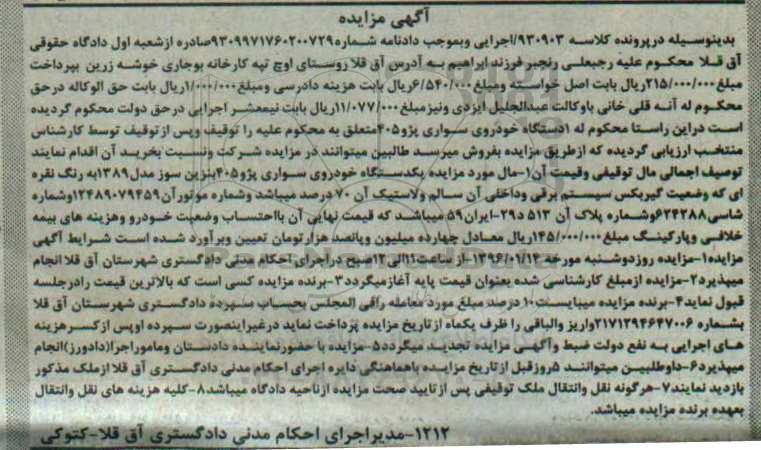 آگهی مزایده
بدینوسیله درپرونده کلاسه ۹۳۰۹۰۳/اجرایی وبموجب دادنامه شماره۹۳۰۹۹۷۱۷۶۰۲۰۰۷۲۹صادره ازشعبه اول دادگاه حقوقی
آق قلا محکوم علیه رجبعلی رنجبر فرزند ابراهیم به آدرس آق قلا روستای اوچ تپه کارخانه بوجاری خوشه زرین بپرداخت
مبلغ۲۱۵/۰۰۰/۰۰۰ریال بابت اصل خواسته ومبلغ۶/۵۴۰/۰۰۰ریال بابت هزینه دادرسی ومبلغ۱/۰۰۰/۰۰۰ریال بابت حق الوکاله درحق
محکوم له آنه قلی خانی باوکالت عبدالجلیل ایزدی ونیزمبلغ۱۱/۰۷۷/۰۰۰ریال بابت نیمعشر اجرایی درحق دولت محکوم گردیده
است دراین راستا محکوم له ۱دستگاه خودروی سواری پژو۴۰۵متعلق به محکوم علیه را توقیف وپس ازتوقیف توسط کارشناس
منتخب ارزیابی گردیده که ازطریق مزایده بفروش میرسد طالبین میتوانند در مزایده شرکت ونسبت بخرید آن اقدام نمایند
توصیف اجمالی مال توقیفی وقیمت آن۱-مال مورد مزایده یکدستگاه خودروی سواری پژو۴۰۵بنزین سوز مدل۱۳۸۹به رنگ نقره
ای که وضعیت گیربکس سیستم برقی وداخلی آن سالم ولاستیک آن ۷۰ درصد میباشد وشماره موتورآن۱۲۴۸۹۰۷۹۴۵۹وشماره
شاسی۶۲۴۲۸۸وشماره پلاک آن ۵۱۳ د۲۹-ایران۵۹ میباشد که قیمت نهایی آن بااحتساب وضعیت خودرو وهزینه های بیمه
خلافی وپارکینگ مبلغ ۱۴۵/۰۰۰/۰۰۰ریال معادل چهارده میلیون وپانصد هزارتومان تعیین وبرآورد شده است شرایط آگهی
مزایده۱-مزایده روزدوشنبه مورخه ۱۳۹۶/۰۱/۱۴-از ساعت۱۱الی۱۲صبح دراجرای احکام مدنی دادگستری شهرستان آق قلاانجام
میپذیرد۲-مزایده ازمبلغ کارشناسی شده بعنوان قیمت پایه آغازمیگردد۳-برنده مزایده کسی است که بالاترین قیمت رادرجلسه
قبول نماید۴-برنده مزایده میبایست۱۰ درصد مبلغ مورد معامله رافی المجلس بحساب سپرده دادگستری شهرستان آق قلا
بشماره ۲۱۷۱۲۹۴۶۴۷۰۰۶واریز والباقی را ظرف یکماه ازتاریخ مزایده پرداخت نماید درغیراینصورت سپرده اوپس ازکسرهزینه
های اجرایی به نفع دولت ضبط وآگهی مزایده تجدید میگردد۵-مزایده با حضورنماینده دادستان وماموراجرا(دادورز)انجام
میپذیرد۶-داوطلبین میتوانند ۵روزقبل ازتاریخ مزایده باهماهنگی دایره اجرای احکام مدنی دادگستری آق قلا ازملک مذکور
بازدید نمایند۷-هرگونه نقل وانتقال ملک توقیفی پس ازتایید صحت مزایده ازناحیه دادگاه میباشد۸-کلیه هزینه های نقل وانتقال
بعهده برنده مزایده میباشد.
۱۲۱۲-مدیراجرای احکام مدنی دادگستری آق قلا-کتوکی